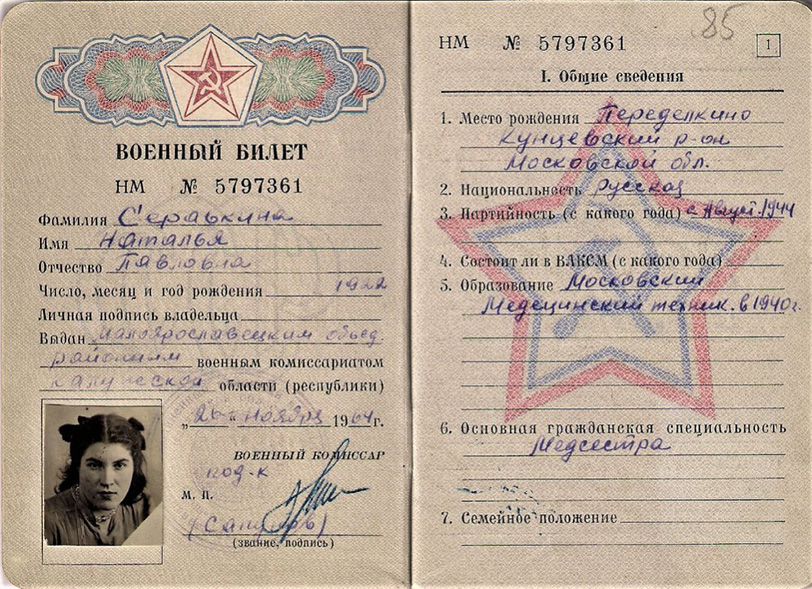 ВОЕННЫЙ БИЛЕТ
НМ № 5797361
Фамилия Серавкина
Имя Наталья
Отчество Павловна
Число, месяц и год рождения 1922
Личная подпись владельца
Выдан Малоярославецким объед
районным военным комиссариатом
калужской области (республики)
„26“ ноября 1964г.
ВОЕННЫЙ КОМИССАР
под-к
М. П.
(звание, подпись)
85
НМ № 5797361
1
I. Общие сведения
1. Место рождения Переделкино
Кунцевский р-он
Московской обл.
2. Национальность русская
3. Партийность (с какого года) с август.1944
4. Состоит ли в ВЛКСМ (с какого года)
5. Образование Московский
Медецинский техник. в 1940г.
6. Основная гражданская специальность
Медсестра
7. Семейное положение